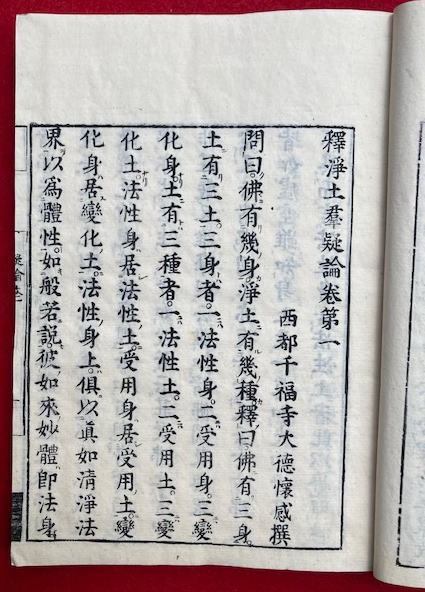 釋淨土羣疑論卷第一
西都千福寺大德懷感撰
問曰。佛有幾身。淨土有幾種。釋曰。佛有三身。
土有三土。三身者。一法性身。二受用身。三變
化身。土有三種者。一法性土。二受用土。三變
化土。法性身居法性土。受用身居受用土。變
化身居變化土。法性身土。俱以真如清淨法
界以爲體性。如般若說。彼如來妙體即法身